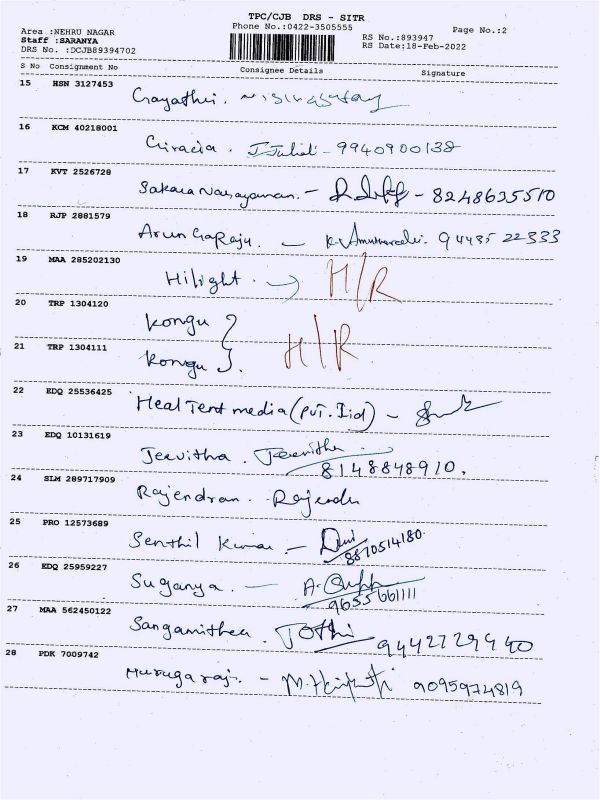 TPC/CJB DRS - SITR
Area :NEHRU NAGAR Phone No.:0422-3505555 Page No.:2
Staff :SARANYA RS No.:893947
DRS No. :DCJB89394702 RS Date:18-Feb-2022
S No Consignment No Consignee Details Signature
15 HSN 3127453
Gayathri.
16 KCM 40218001
Ciracia. J Juliet - 9940900138
17 KVT 2526728
Sakara Narayanan. - 8248635510
18 RJP 2881579
Arun GaRaju. - 94435 22333
19 MAA 285202130
Hilight. → H/R
20 TRP 1304120
Kongu
21 TRP 1304111 H/R
Kongu
22 EDQ 25536425
Heal Tent media (PVT. Ltd) -
23 EDQ 10131619
Jeevitha. Jeevitha
8148848910.
24 SLM 289717909
Rajendran. Rajendra
25 PRO 12573689
Senthil Kumar -
8870514180
26 EDQ 25959227
Suganya. -
9655661111
27 MAA 562450122
Sangamithea. Jothi 9442729440
28 PDK 7009742
Murugaraj. - 9095974819